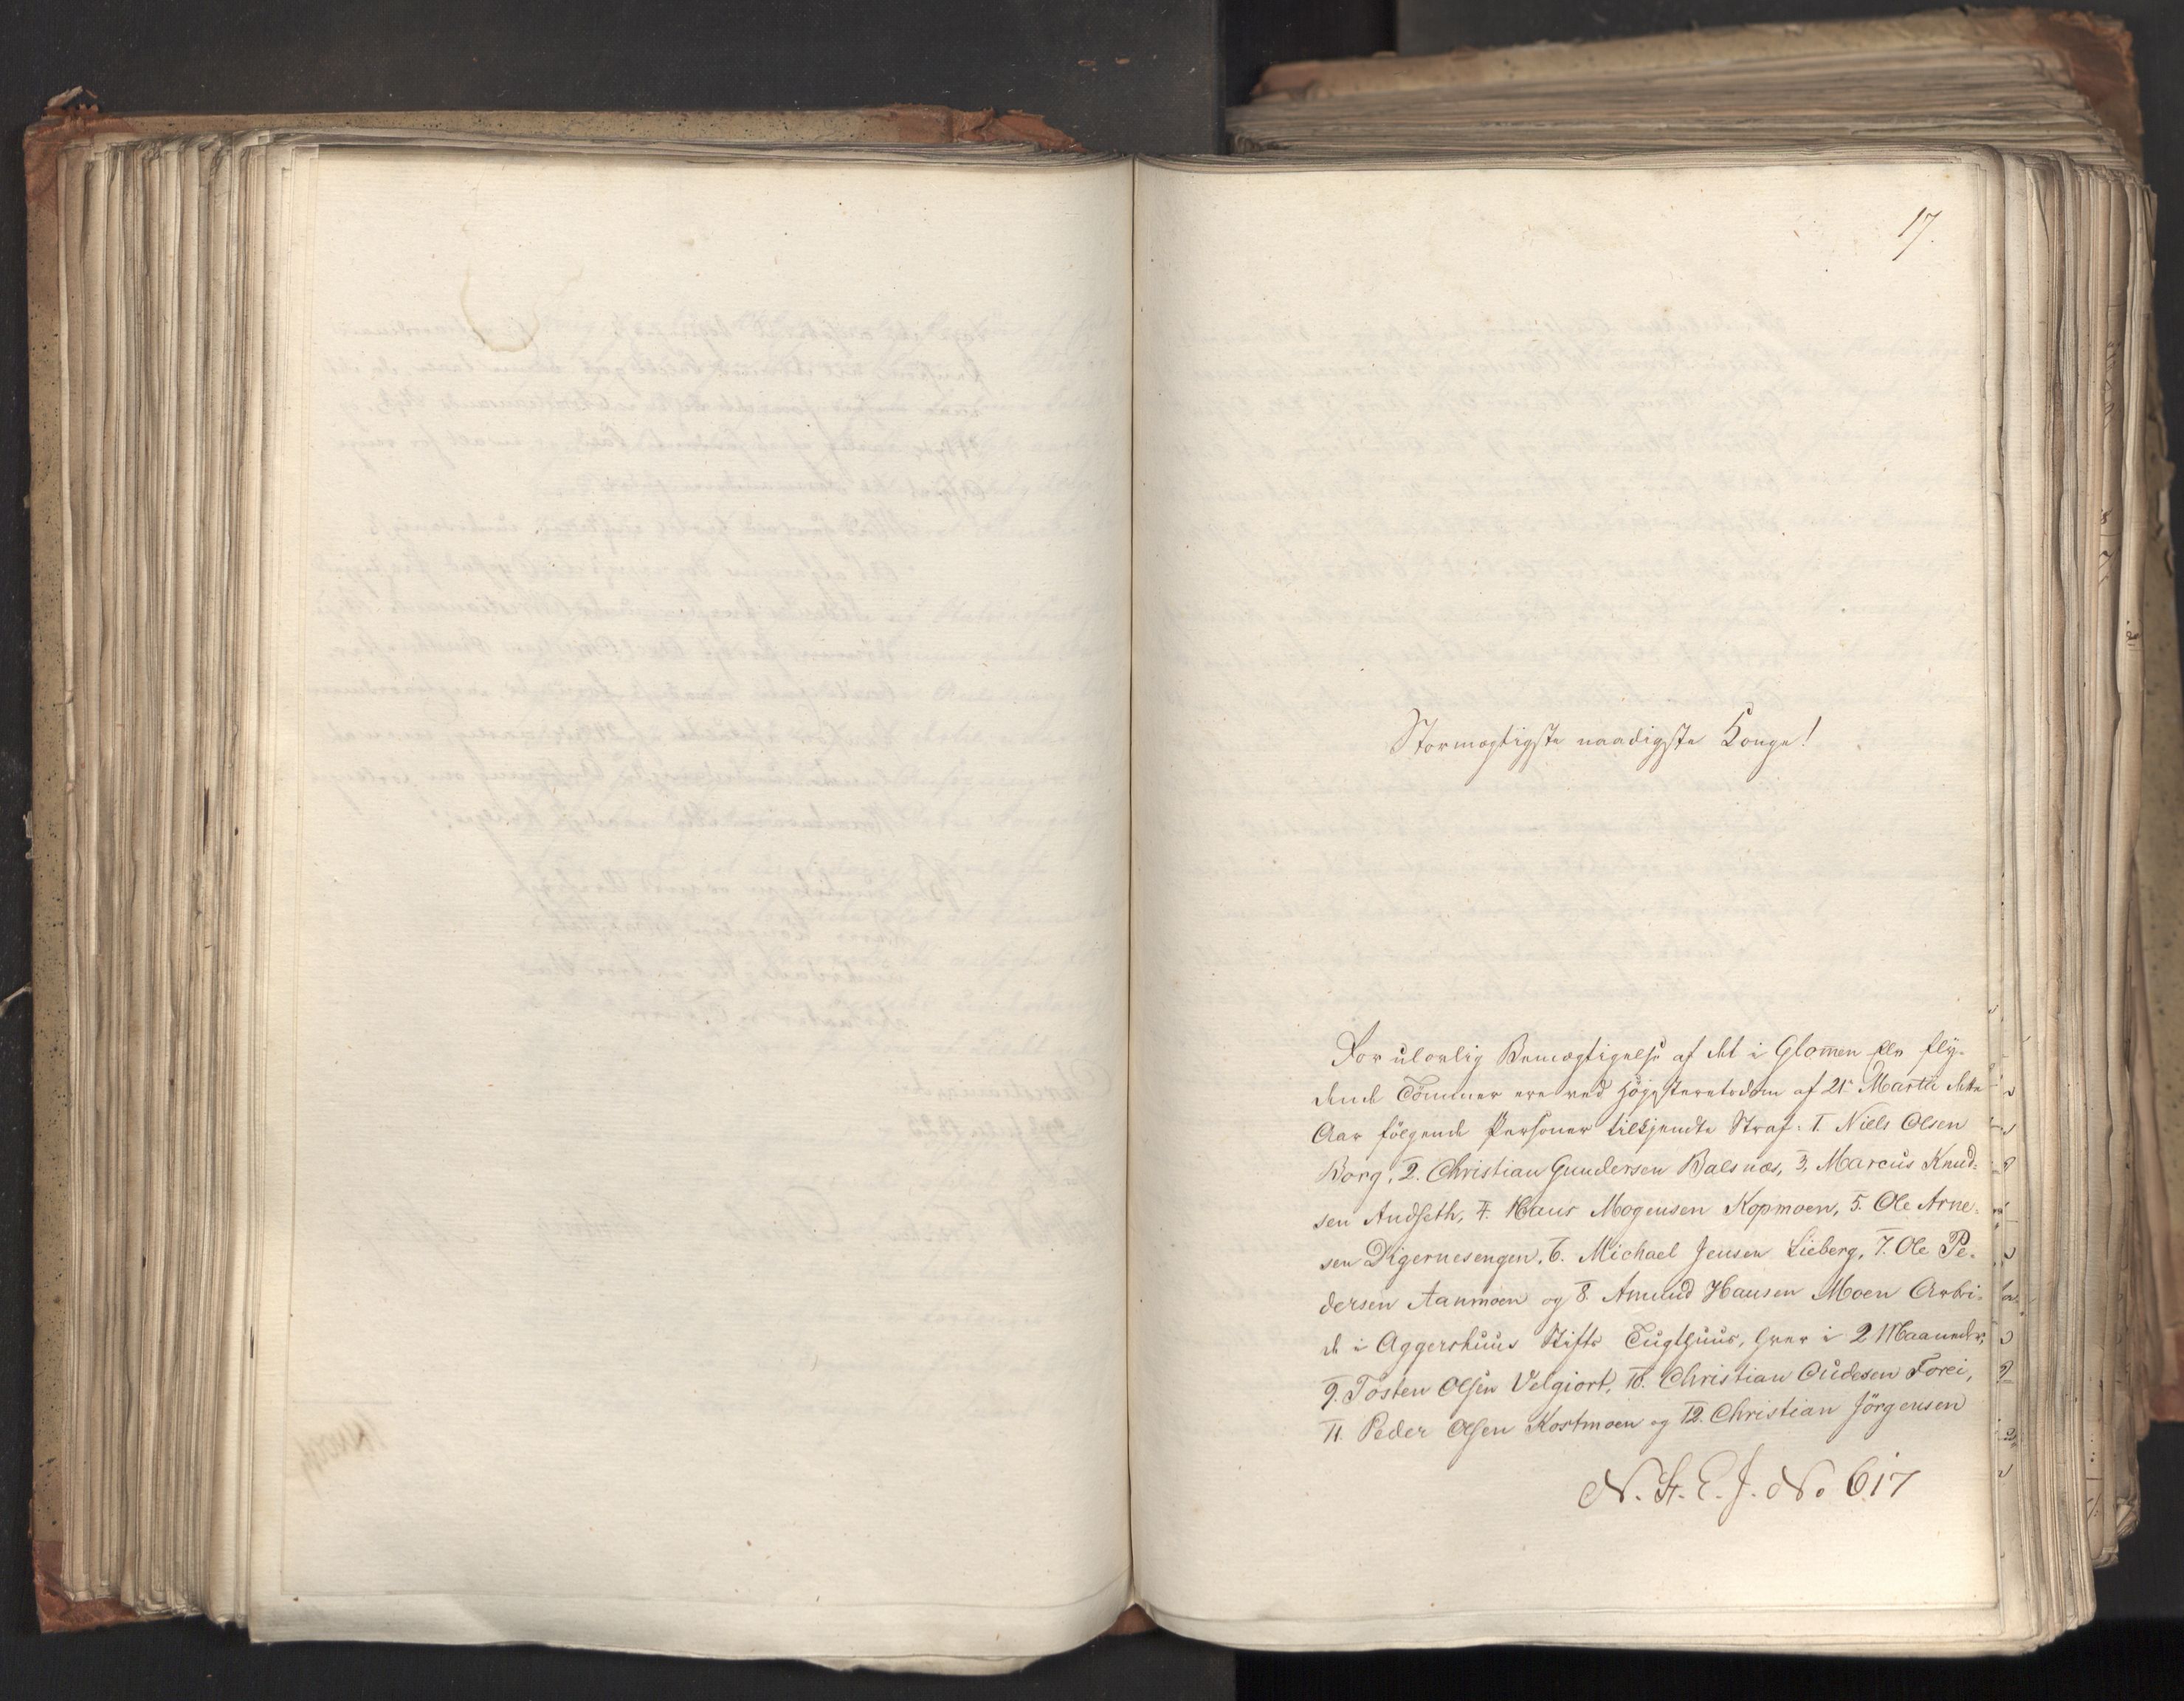 17.
Stormægtigste naadigste Konge!
For ulovlig Bemægtigelse af det i Glom̄en fly-
dende Tömmer ere ved Höjesteretsdom af 21de Martii dette
Aar fölgende Personer tilkjendte Straf: 1. Niels Olsen
Borg, 2. Christian Gundersen Balsnæs, 3. Marcus Knud-
sen Andseth, 4. Hans Mogensen Kopmoen, 5. Ole Arne-
sen Digernesengen, 6. Michael Jensen Lieberg, 7. Ole Pe-
dersen Aanmoen og 8. Amund Hansen Moen Arbei-
de i Aggershuus Stifts Tugthuus, hver i 2 Maaneder;
9. Tosten Olsen Velgiort, 10. Christian Oudesen Forei,
11. Peder Olsen Kostmoen og 12. Christian Jörgensen
N. St. E. J. No 617